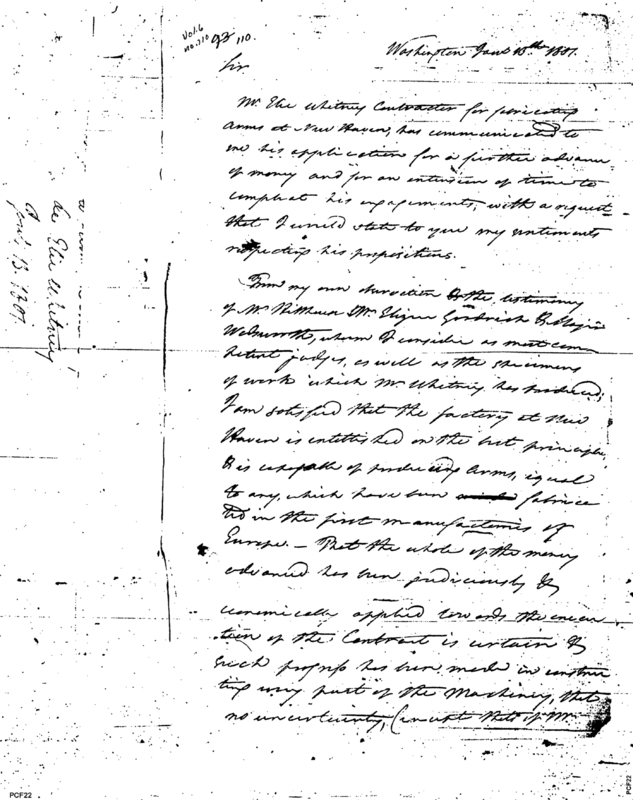 Vol. 6
no. 110 92 110.
Washington Jany 13th 1801.
Sir
Mr. Elie Whitney Contractor for fabricating
Arms at New Haven, has communicated to
me his application for a further advance
of money and for an extension of time to
compleat his engagements, with a request
that I would state to you my sentiments
respecting his propositions.
From my own observation & the testimony
of Mr Mr. Elizur Goodrich & Major
Wadsworth, whom I consider as most com
petent judges, as well as the specimens
of work which Mr. Whitney has produced,
I am satisfied that the factory at New
Haven is establishd on the best principles,
& is capable of producing Arms, equal
to any, which have been fabrica
ted in the first manufactories of
Europe. — That the whole of the money
advanced has been judiciously &
economically applied towards the execu
tion of the Contract is certain &
such progress has been made in construc
ting every part of the Machinery, that
no uncertainty, (except that of Mr.
Elie Whitney
Jany. 13. 1801.
PCF22
PCF22